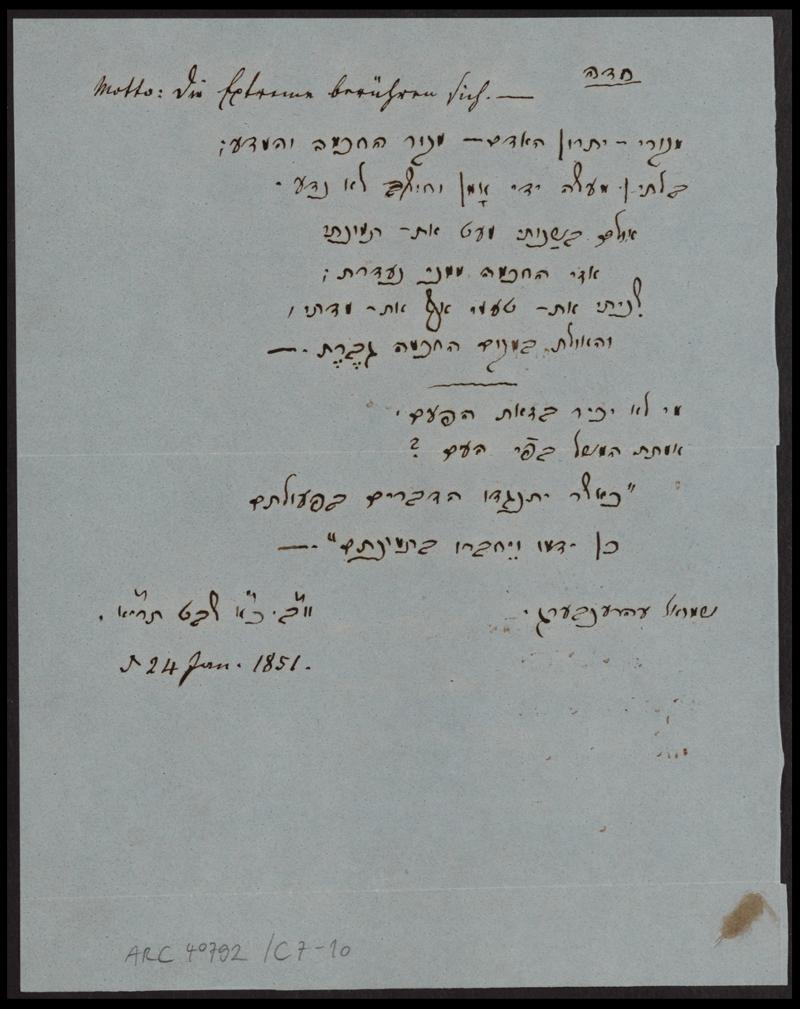 חדה
Motto: Die Extreme berühren sich. —
מגורי – יתרון האדם – מגור החכמה והמדע;
בלתי מעלה ידי אָמן וחילק לא נדע.
אולם בשַׁנותי מעט את– תמונתי
אדי החכמה ממני נעדרת;
לניתי את– טעמי אף את– מדתי,
והאולת במגום החכמה גְבֶרֶת. —
מי לא יכיר בזאת הפעם,
אמתת המשל בפי העם?
"כאשר יתנגדו הדברים בפעולתם
כן ידמו ויחברו בתמונתם". —
שמואל עהרענבערג.
ו״ב. כ״א שבט תרי״א.
d 24 Jan. 1851.
ARC 4°792 /C7-10